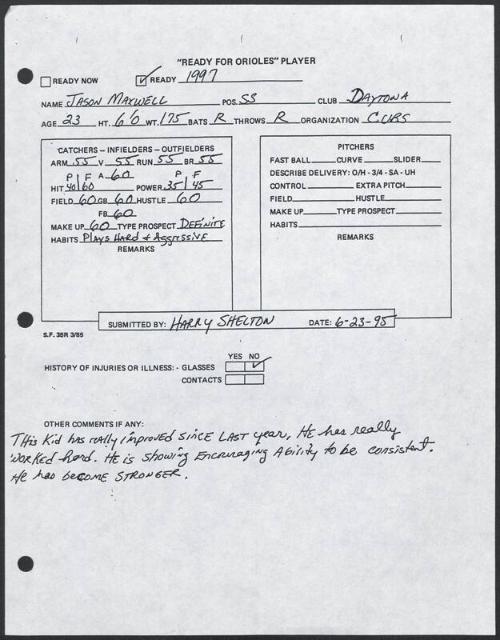 "READY FOR ORIOLES" PLAYER
READY NOW ✓ READY 1997
NAME JASON MAXWELL POS. SS CLUB DAYTONA
AGE 23 HT. 6'0 WT. 175 BATS R THROWS R ORGANIZATION CUBS
CATCHERS - INFIELDERS - OUTFIELDERS
ARM 55 V 55 RUN 55 BR 55
P F A 60 P F
HIT 40 60 POWER 35 45
FIELD 60 GB 60 HUSTLE 60
FB 60
MAKE UP 60 TYPE PROSPECT DEFINITE
HABITS PLAYS HARD & AGGRESSIVE
REMARKS
PITCHERS
FAST BALL CURVE SLIDER
DESCRIBE DELIVERY: O/H - 3/4 - SA - UH
CONTROL EXTRA PITCH
FIELD HUSTLE
MAKE UP TYPE PROSPECT
HABITS
REMARKS
SUBMITTED BY: HARRY SHELTON DATE: 6-23-95
S.F. 35R 3/85
YES NO
HISTORY OF INJURIES OR ILLNESS: - GLASSES ✓
CONTACTS
OTHER COMMENTS IF ANY:
THis Kid has really improved SINCE LAST year, HE has really
worked hard. HE is showing Encouraging Ability to be consistent.
He has become STRONGER.